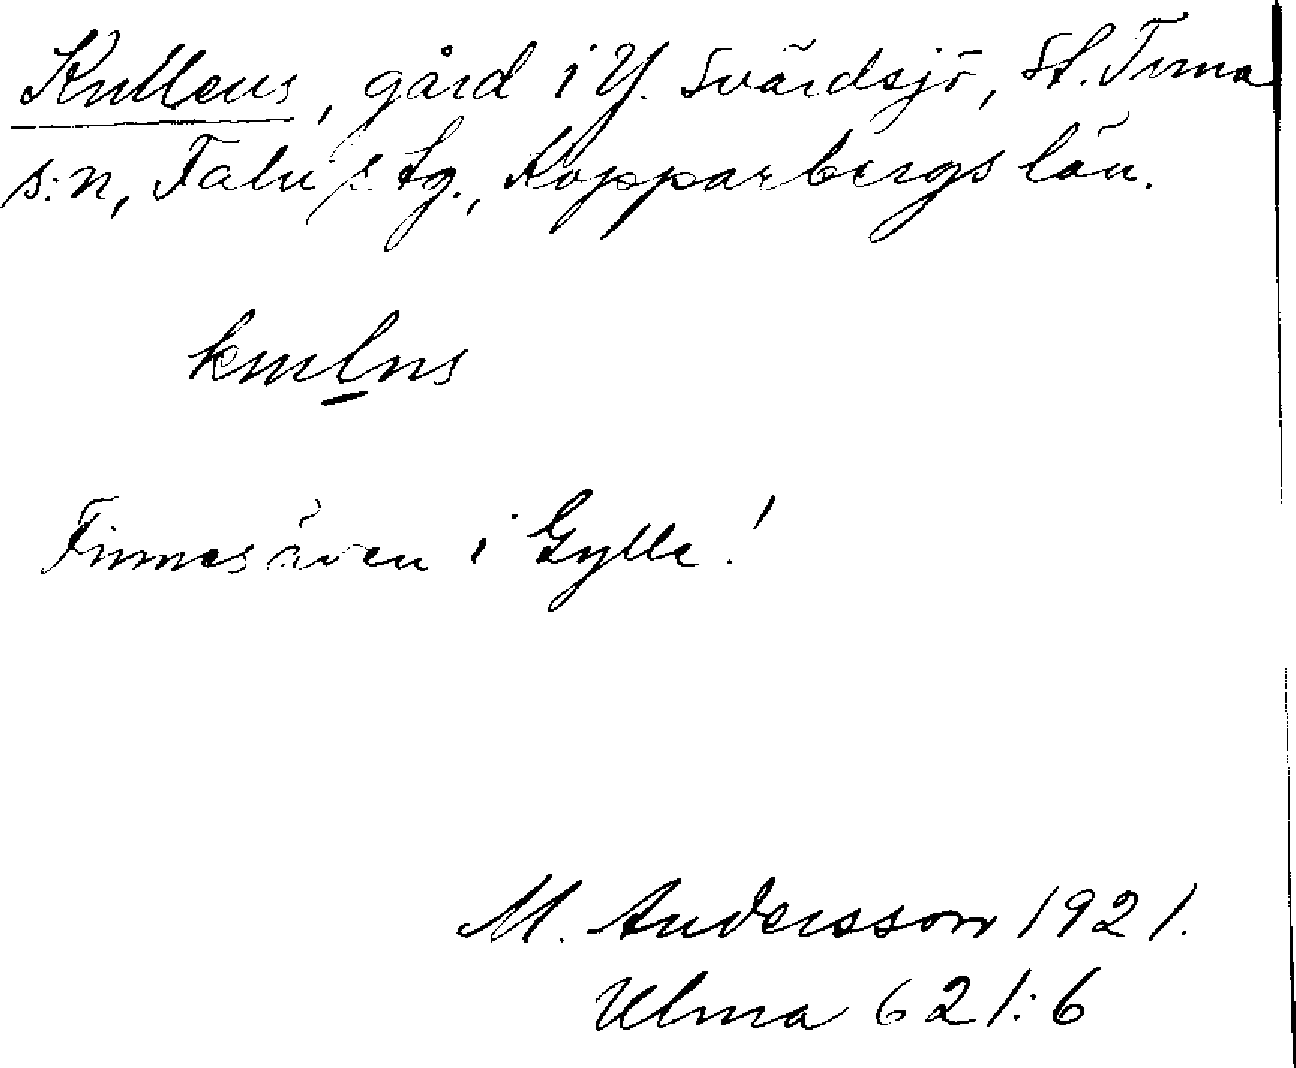 Kullens, gård i Y. Svärdsjö, St. Tuna
s:n, Falu s. tg., Kopparbergs län.
kulns
Finnes även i Gylle!
M. Andersson 1921.
Ulma 621:6